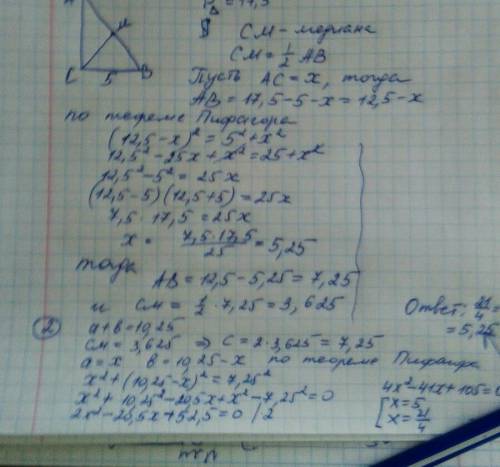 A
M
C 5 B
P△ = 17,5
CM – медиана
CM = 1/2 AB
Пусть AC = x, тогда
AB = 17,5 – 5 – x = 12,5 – x
по теореме Пифагора
(12,5 – x)² = 5² + x²
12,5² – 25x + x² = 25 + x²
12,5² – 5² = 25x
(12,5 – 5)(12,5 + 5) = 25x
7,5 · 17,5 = 25x
x = 7,5 · 17,5 / 25 = 5,25
тогда
AB = 12,5 – 5,25 = 7,25
и CM = 1/2 · 7,25 = 3,625
Ответ: 21/4 =
= 5,25
2 a + b = 10,25
CM = 3,625 ⇒ C = 2 · 3,625 = 7,25
a = x b = 10,25 – x по теореме Пифагора
x² + (10,25 – x)² = 7,25²
x² + 10,25² – 20,5x + x² – 7,25² = 0
2x² – 20,5x + 52,5 = 0 | 2
4x² – 41x + 105 = 0
[ x = 5
x = 21/4